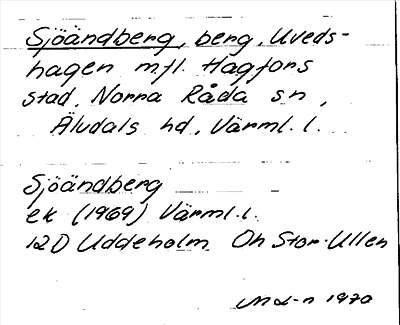 Sjöändberg, berg, Uveds-
hagen mfl. Hagfors
stad, Norra Råda sn,
Äludals hd, Värml. l.
Sjöändberg
ek (1969) Värml. l.
12D Uddeholm Oh Stor-Ullen
1970